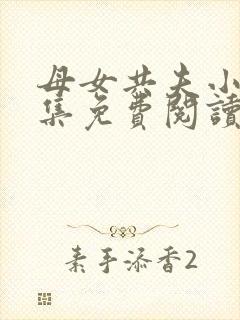 母女共夫小
集免費閱讀
素手添香2